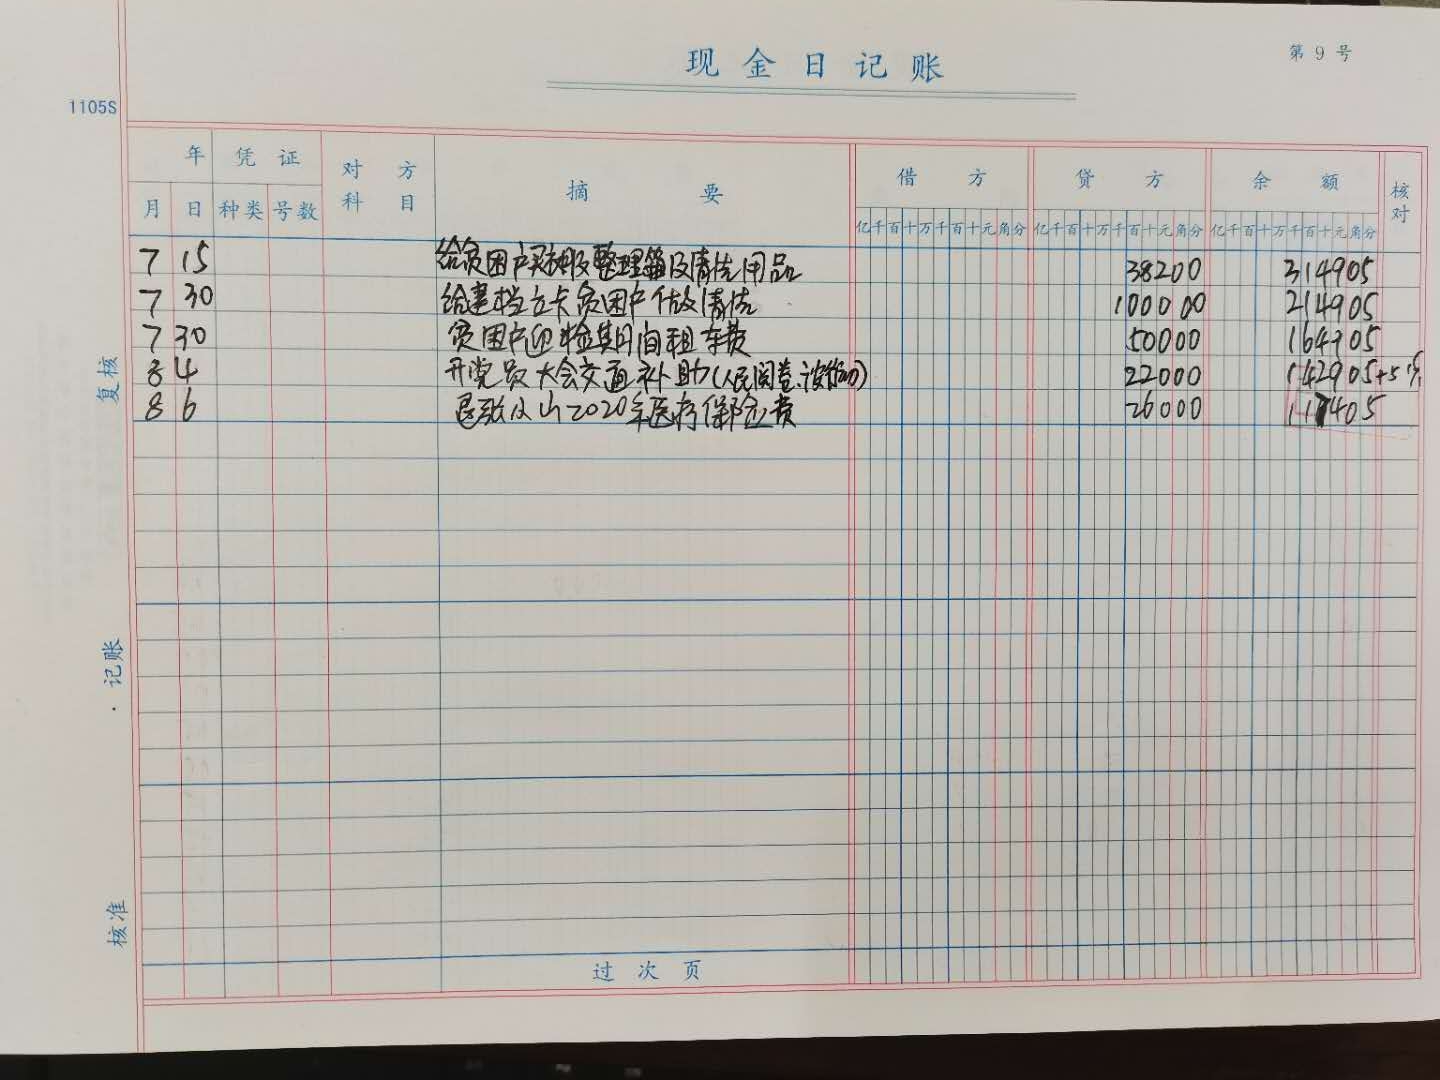 现金日记账
第 9 号
1105S
年 凭证 对方科目 摘要 借方 贷方 余额 核对
月 日 种类 号数 亿千百十万千百十元角分 亿千百十万千百十元角分 亿千百十万千百十元角分
7 15 给贫困户买衣服及整理箱及清洁用品 38200 314905
7 30 给建档立卡贫困户做清洁 100000 214905
7 30 贫困户迎检期间租车费 50000 164905
8 4 开党员大会交通补助(人民阅卷、 22000 142905+5
8 6 2020年医疗保险费 26000 117405
过次页
复核
记账
核准